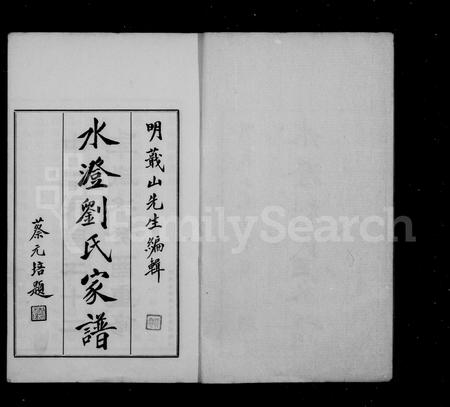 明蕺山先生編輯
水澄劉氏家譜
蔡元培題
FamilySearch